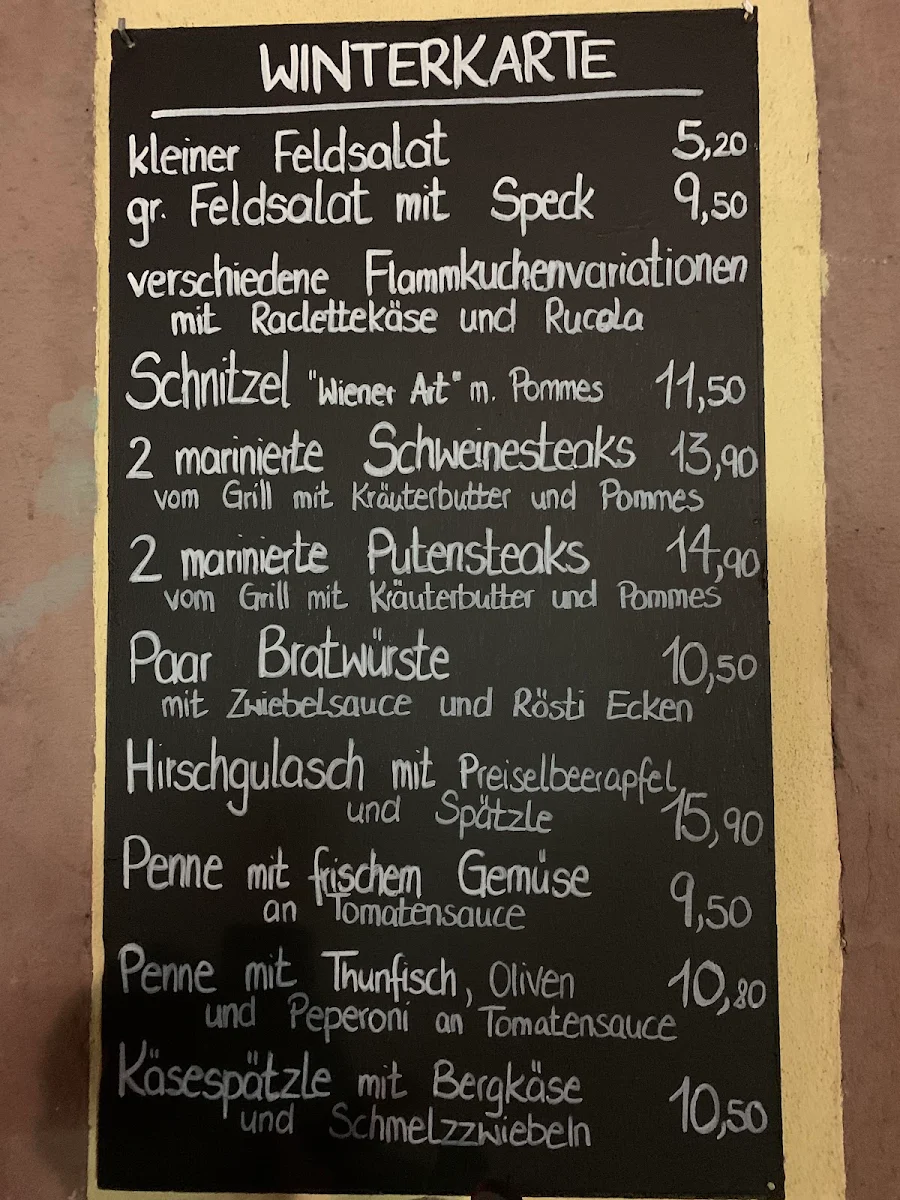 WINTERKARTE
kleiner Feldsalat 5,20
gr. Feldsalat mit Speck 9,50
verschiedene Flammkuchenvariationen
mit Raclettekäse und Rucola
Schnitzel "Wiener Art" m. Pommes 11,50
2 marinierte Schweinesteaks 13,90
vom Grill mit Kräuterbutter und Pommes
2 marinierte Putensteaks 14,90
vom Grill mit Kräuterbutter und Pommes
Paar Bratwürste 10,50
mit Zwiebelsauce und Rösti Ecken
Hirschgulasch mit Preiselbeerapfel
und Spätzle 15,90
Penne mit frischem Gemüse
an Tomatensauce 9,50
Penne mit Thunfisch, Oliven 10,80
und Peperoni an Tomatensauce
Käsespätzle mit Bergkäse
und Schmelzzwiebeln 10,50